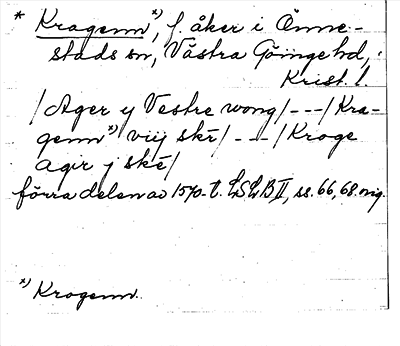 * Kragenn*), f. åker i Önne-
stads sn, Västra Göinge hd,
Krist. l.
/Ager y Vestre wong/---/Kra-
genn*) viij skr/---/Kroge
agir j ske/
förra delen av 1570-t. LSLB II, ss. 66, 68. orig.
*) Krogenn.